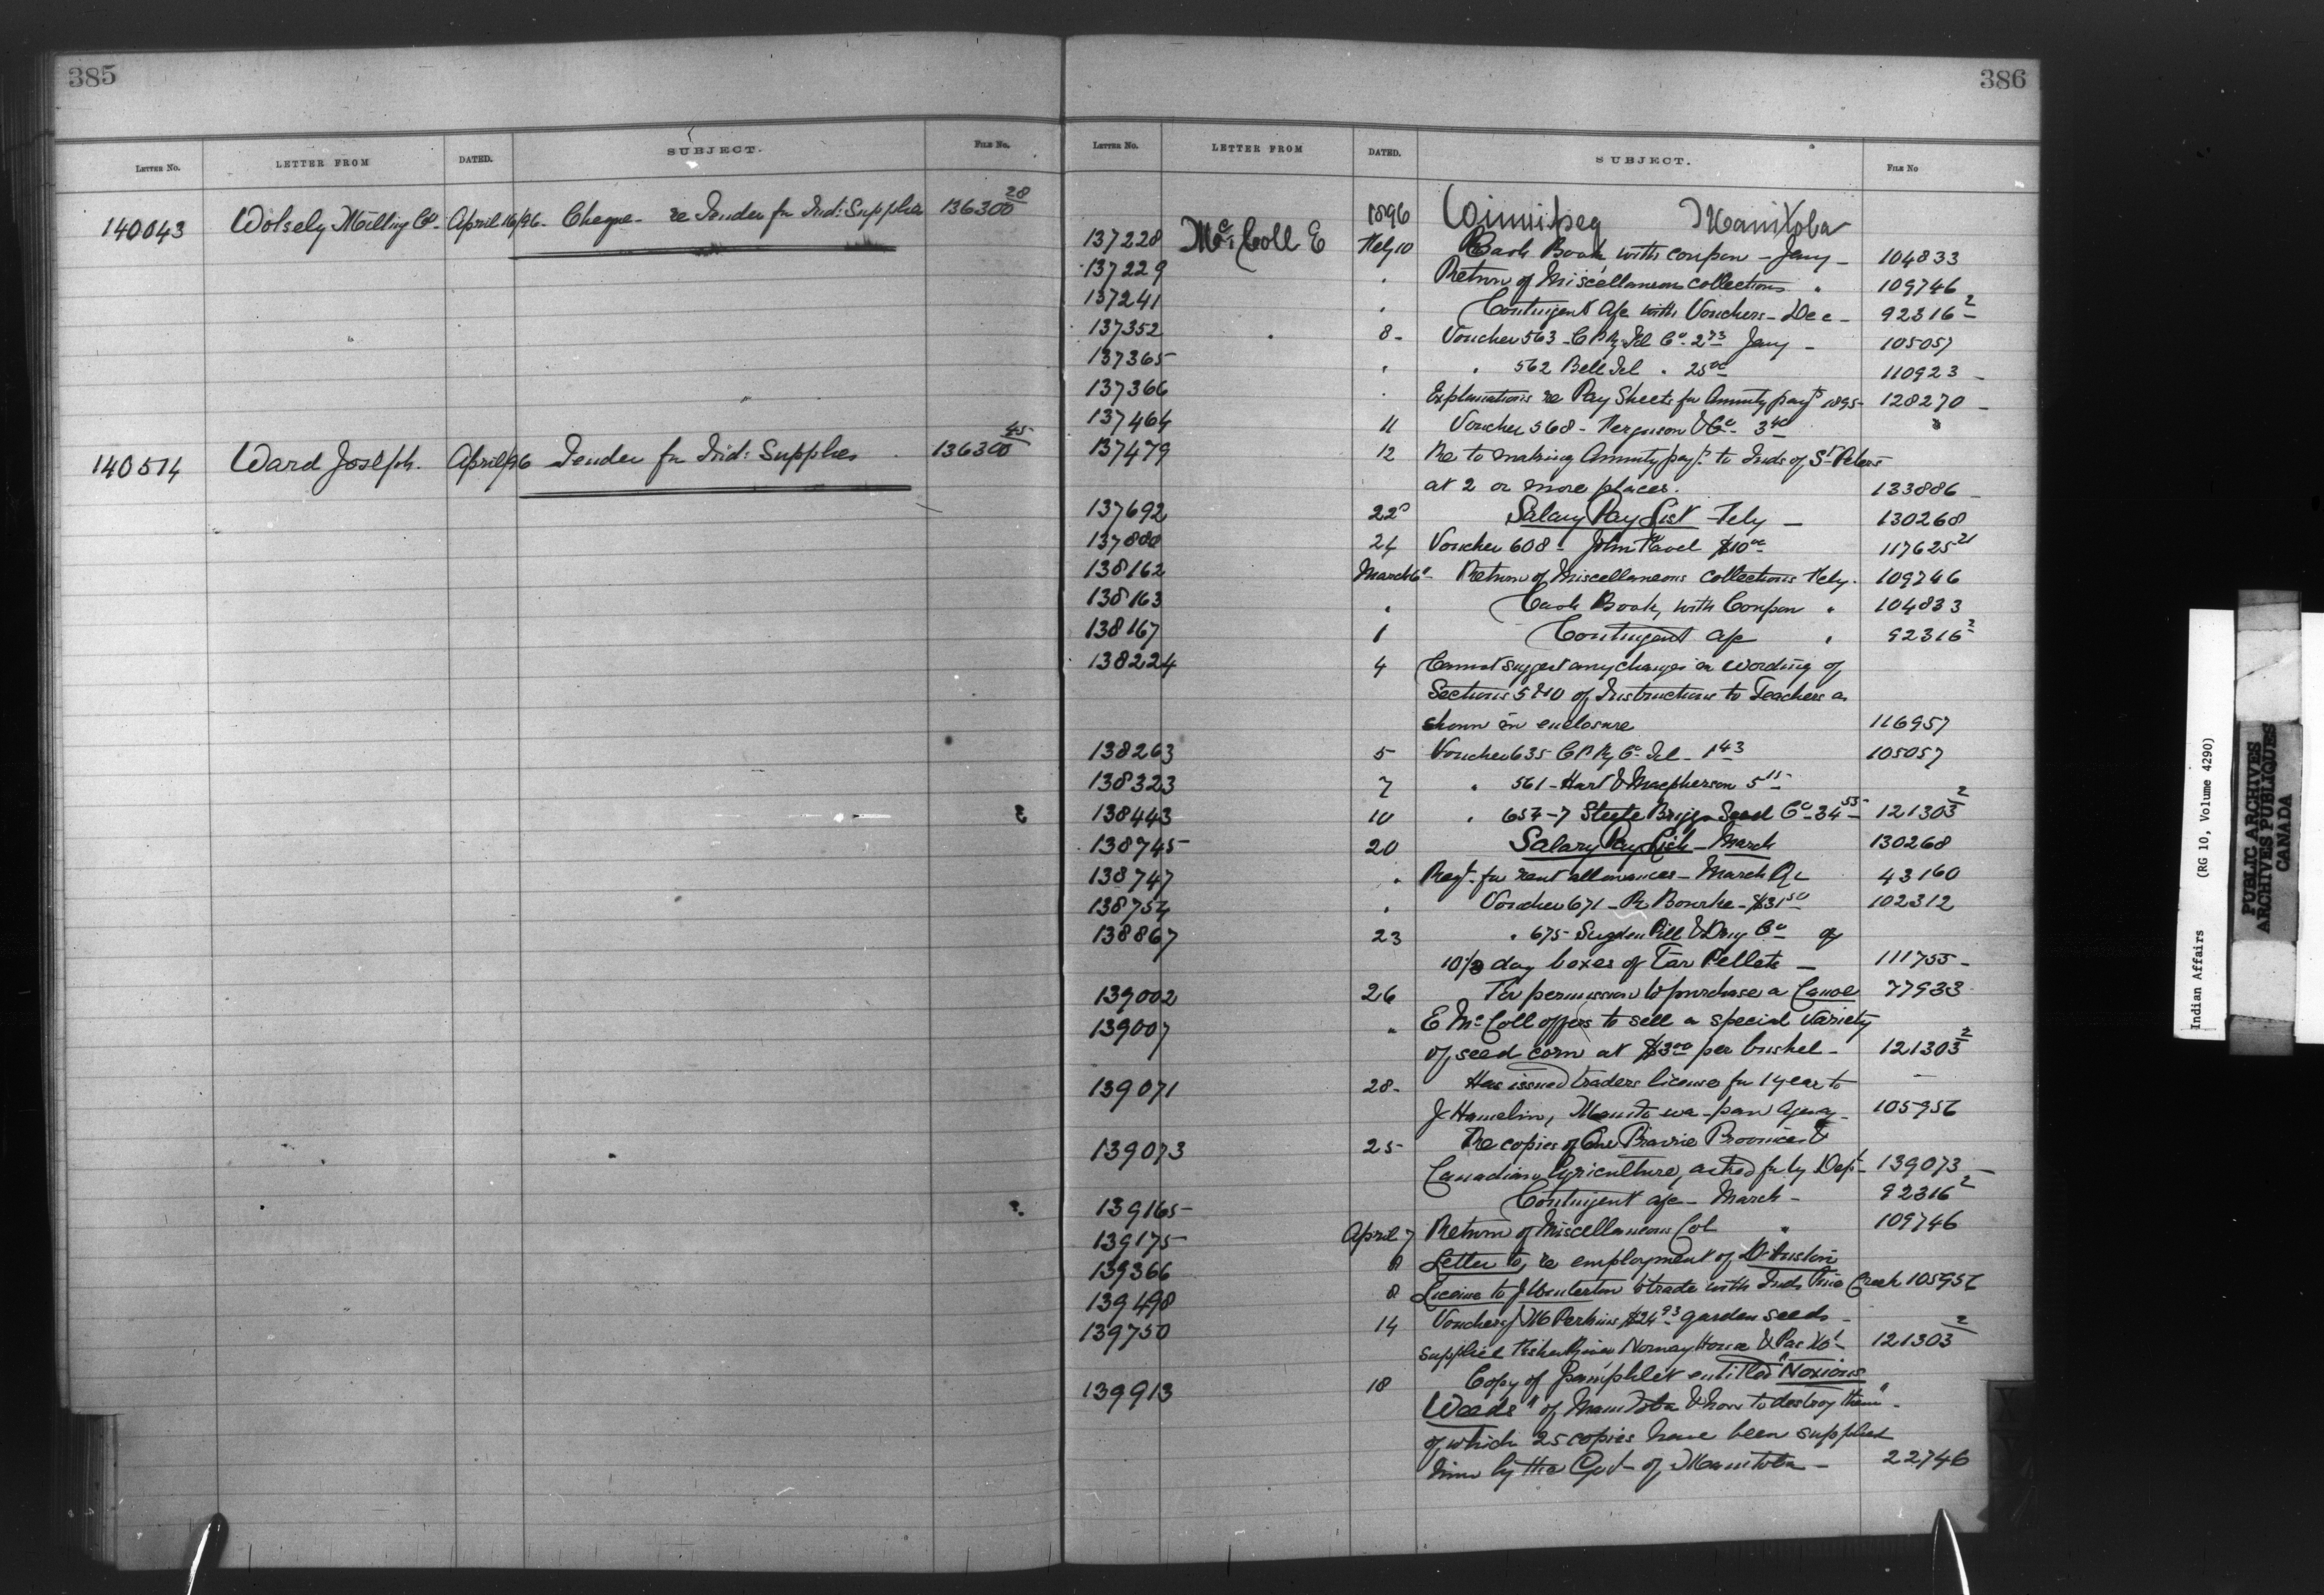 385
LETTER No. LETTER FROM DATED. SUBJECT. FILE No.
140043 Wolsely Milling Co. April 16/96. Cheque - re Tender for Ind: Supplies 136300 28
140514 Ward Joseph. April/96 Tender for Ind: Supplies 136300 45
386
LETTER No. LETTER FROM DATED. SUBJECT. FILE No
1896 Winnipeg Manitoba
137228 McColl E Feby 10 Cash Book with coupon - Jany - 104833
137229 " Return of Miscellaneous collections " 109746
137241 " Contingent a/c with Vouchers - Dec - 92316 2
137352 8 - Voucher 563 - C P Ry Tel Co - 2 73 Jany - 105057
137365 " " 562 Bell Tel " 25 00 110923 -
137366 " Explanations re Pay Sheets for Annuity payts 1895 - 128270 -
137464 11 Voucher 568 - Ferguson & Co - 3 40 "
137479 12 Re to making Annuity payt to Inds of St Peters
at 2 or more places. 133886 -
137692 22 Salary Pay List - Feby - 130268
24 Voucher 608 - John $10 00 117625 21
138162 March 6 - Return of Miscellaneous collections Feby. 109746
138163 " Cash Book, with Coupon " 104833
138167 1 Contingent a/c " 92316 2
138224 4 Cannot suggest any changes in wording of
Sections 5 & 10 of Instructions to Teachers as
shown in enclosure 116957
138263 5 Voucher 635 C P Ry Co - Tel - 1 43 105057
138323 7 " 561 - Hart & Macpherson 5 15
138443 10 " 654-7 Steele Briggs Seed Co - 34 55 121303 2
138745 20 Salary Pay List - March 130268
138747 " Reqt. for rent allowances - March Qr 43160
138754 " Voucher 671 - R Bourke - $31 50 102312
138867 23 " 675 - Sugden Pill & Drug Co - of
10 day boxes of Tar Pellets - 111755 -
139002 26 For permission to purchase a Canoe 77933
139007 " E McColl offers to sell a special variety
of seed corn at $3 00 per bushel - 121303 2
139071 28 - Has issued traders license for 1 year to -
J Hamelin, Manito-wa-paw Agency - 105956
139073 25 - Re copies of Our Prairie Province &
Canadian Agriculture, asked for by Dept - 139073 -
139165 - Contingent a/c - March - 92316 2
139175 April 7 Return of Miscellaneous Col " 109746
139366 8 Letter to, re employment of
139498 8 License to J Winterton to trade with Inds Pine Creek 105956
139750 14 Voucher J M Perkins $24 93 garden seeds -
supplied Fisher River Norway House & Pas 121303 2
139913 18 Copy of Pamphlet entitled "Noxious
Weeds" of Manitoba & how to destroy them" -
of which 25 copies have been supplied
him by the Govt - of Manitoba - 22746
Indian Affairs (RG 10, Volume 4290)
PUBLIC ARCHIVES
ARCHIVES PUBLIQUES
CANADA